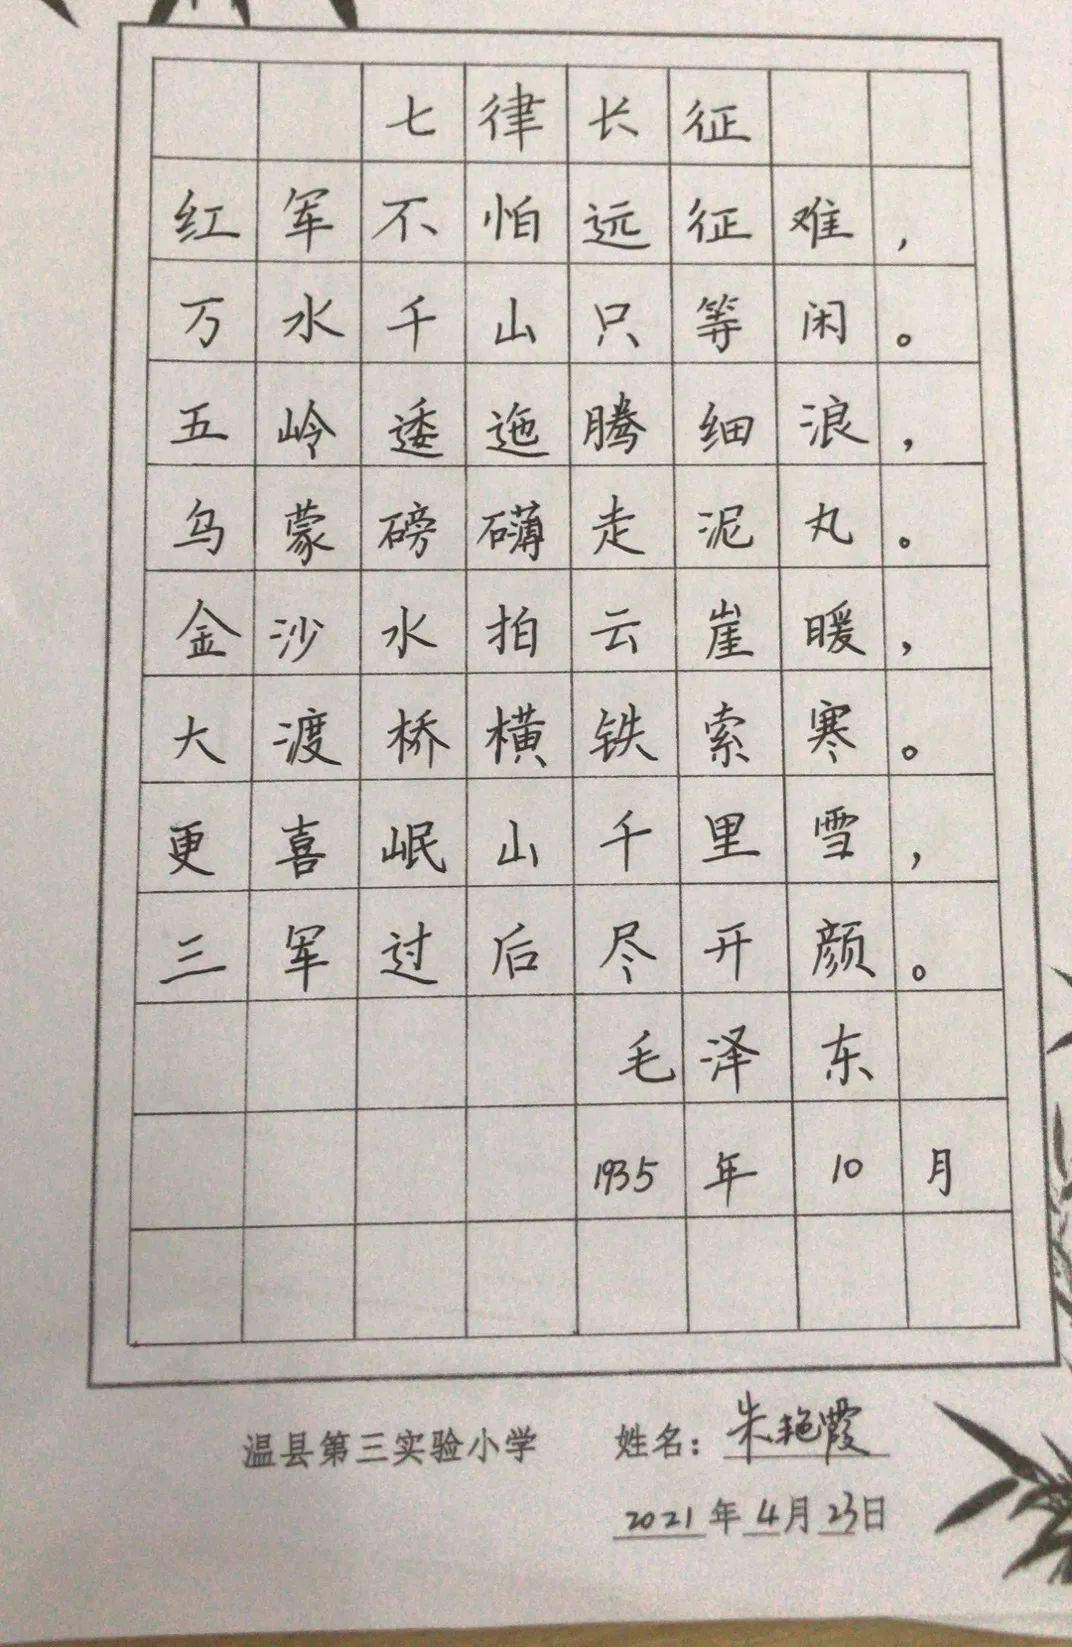 七律长征
红军不怕远征难，
万水千山只等闲。
五岭逶迤腾细浪，
乌蒙磅礴走泥丸。
金沙水拍云崖暖，
大渡桥横铁索寒。
更喜岷山千里雪，
三军过后尽开颜。
毛泽东
1935年10月
温县第三实验小学 姓名：朱艳霞
2021年4月23日